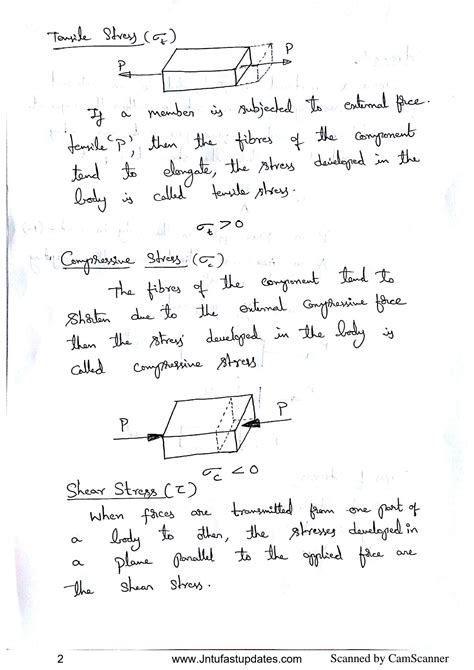 Tensile Stress (σt)
P P
If a member is subjected to external force
tensile 'P', then the fibres of the component
tend to elongate, the stress developed in the
body is called tensile stress.
σt > 0
Compressive Stress (σc)
The fibres of the component tend to
shorten due to the external compressive force
then the stress developed in the body is
called compressive stress
P P
σc < 0
Shear Stress (τ)
When forces are transmitted from one part of
a body to other, the stresses developed in
a plane parallel to the applied force are
the shear stress.
2 www.Jntufastupdates.com Scanned by CamScanner